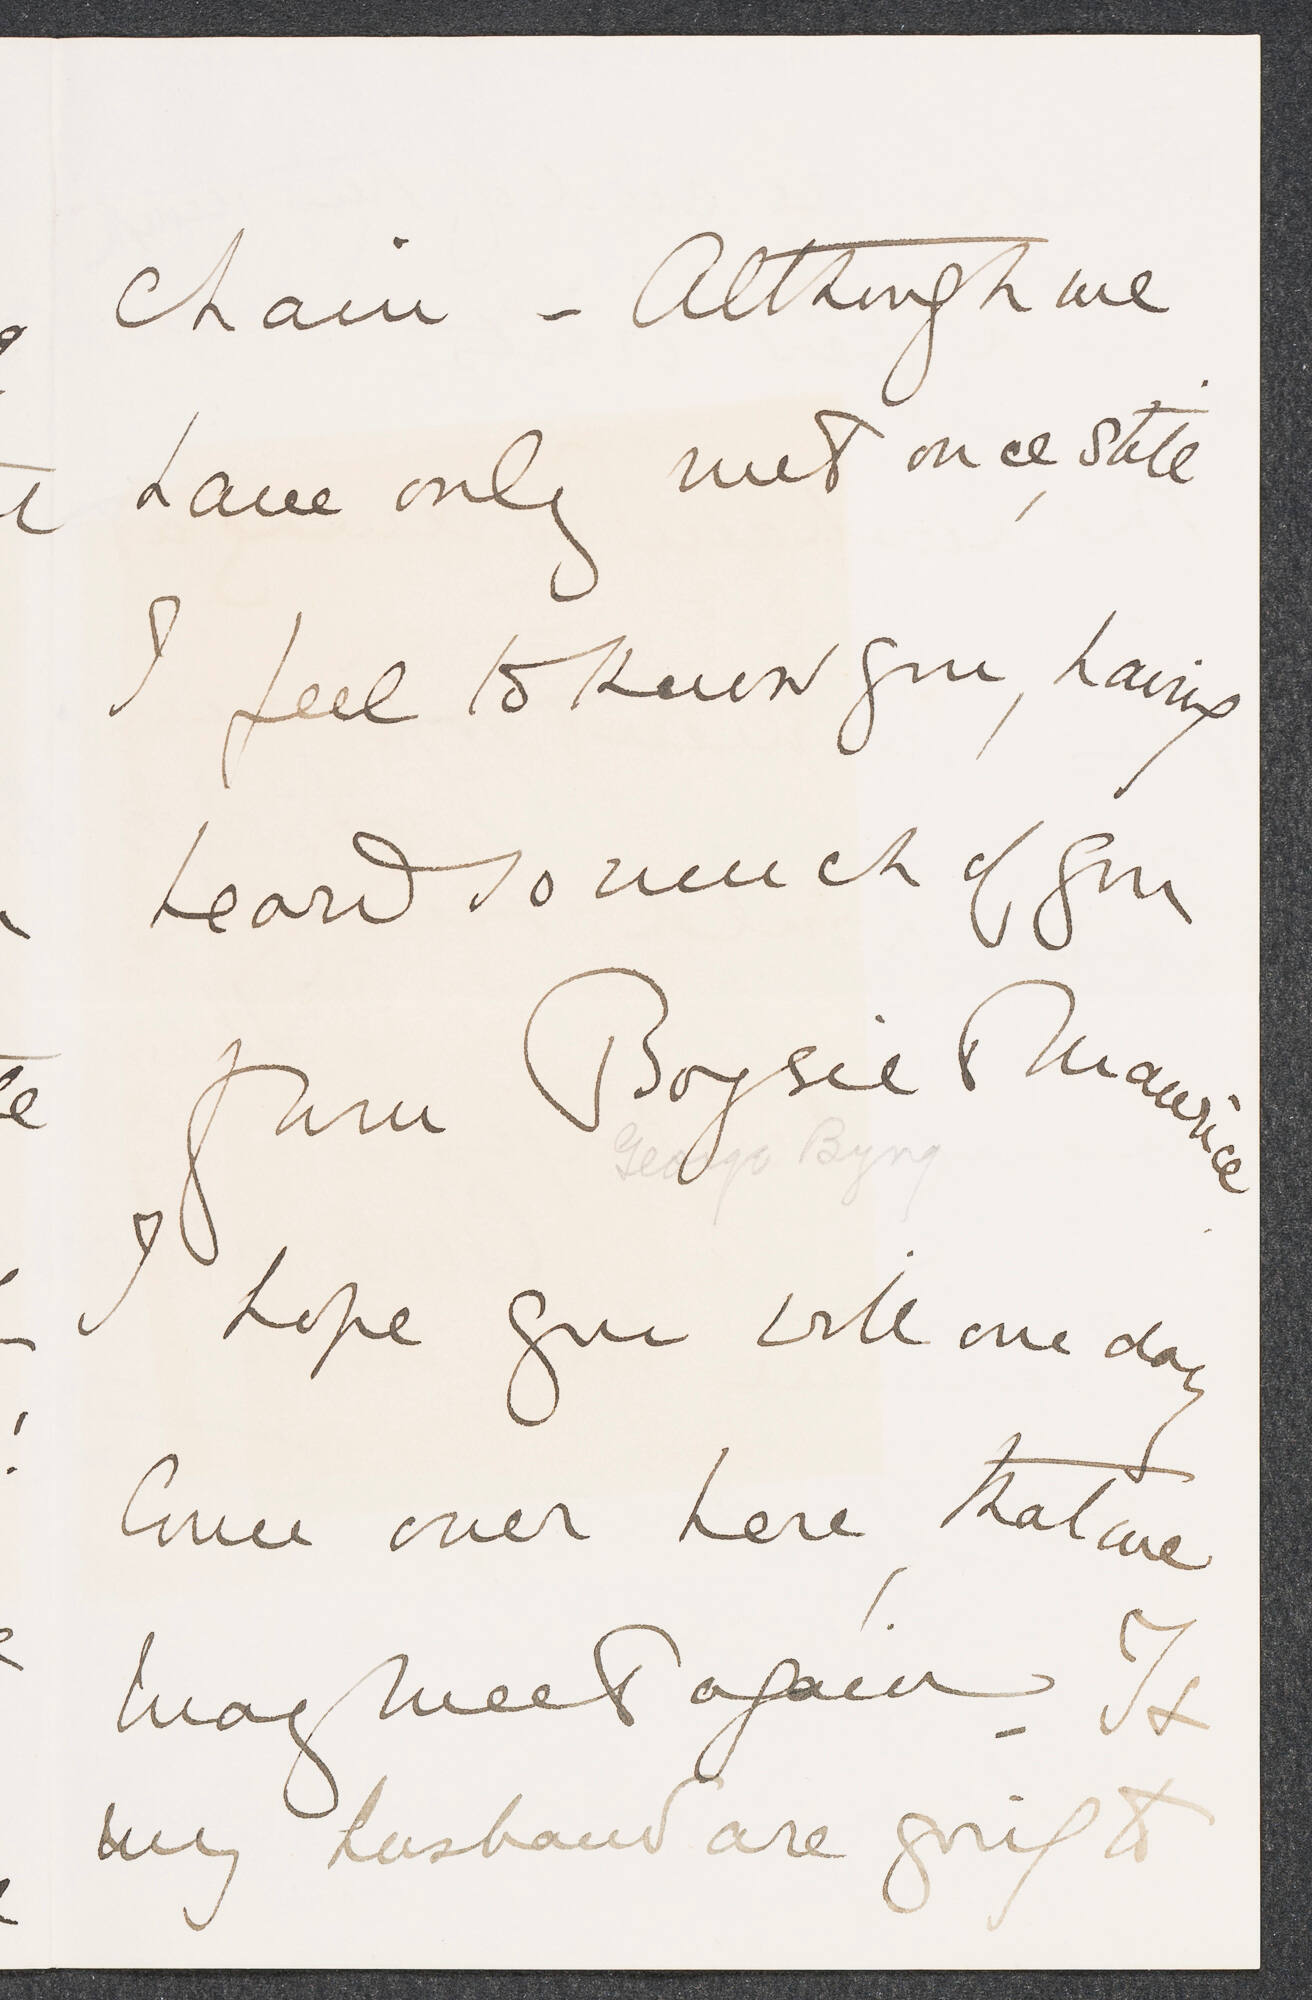 chain - Although we
have only met once, still
I feel to know you, having
heard so much of you
from Boysie & Maurice
George Byng
I hope you will one day
Come over here, that we
may meet again - I &
my husband are going to